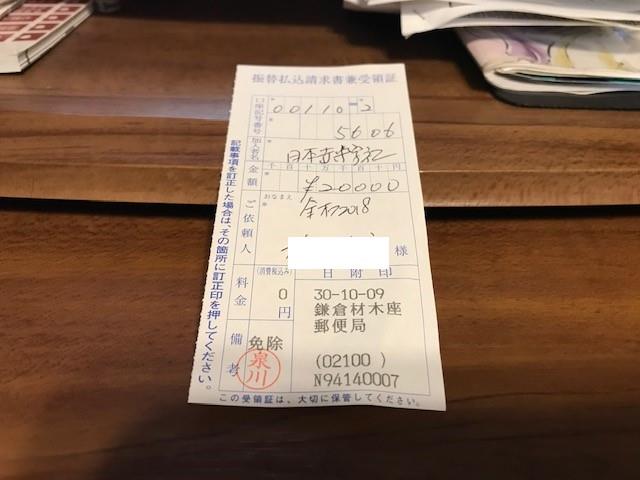 振替払込請求書兼受領証
口座記号番号
00110-2
5606
加入者名
日本赤十字社
金額
千百十万千百十円
¥20000
ご依頼人
おなまえ
2018
様
料金
(消費税込み)
0
円
日附印
30-10-09
鎌倉材木座
郵便局
(02100 )
N94140007
備考
免除
泉川
記載事項を訂正した場合は、その箇所に訂正印を押してください。
この受領証は、大切に保管してください。